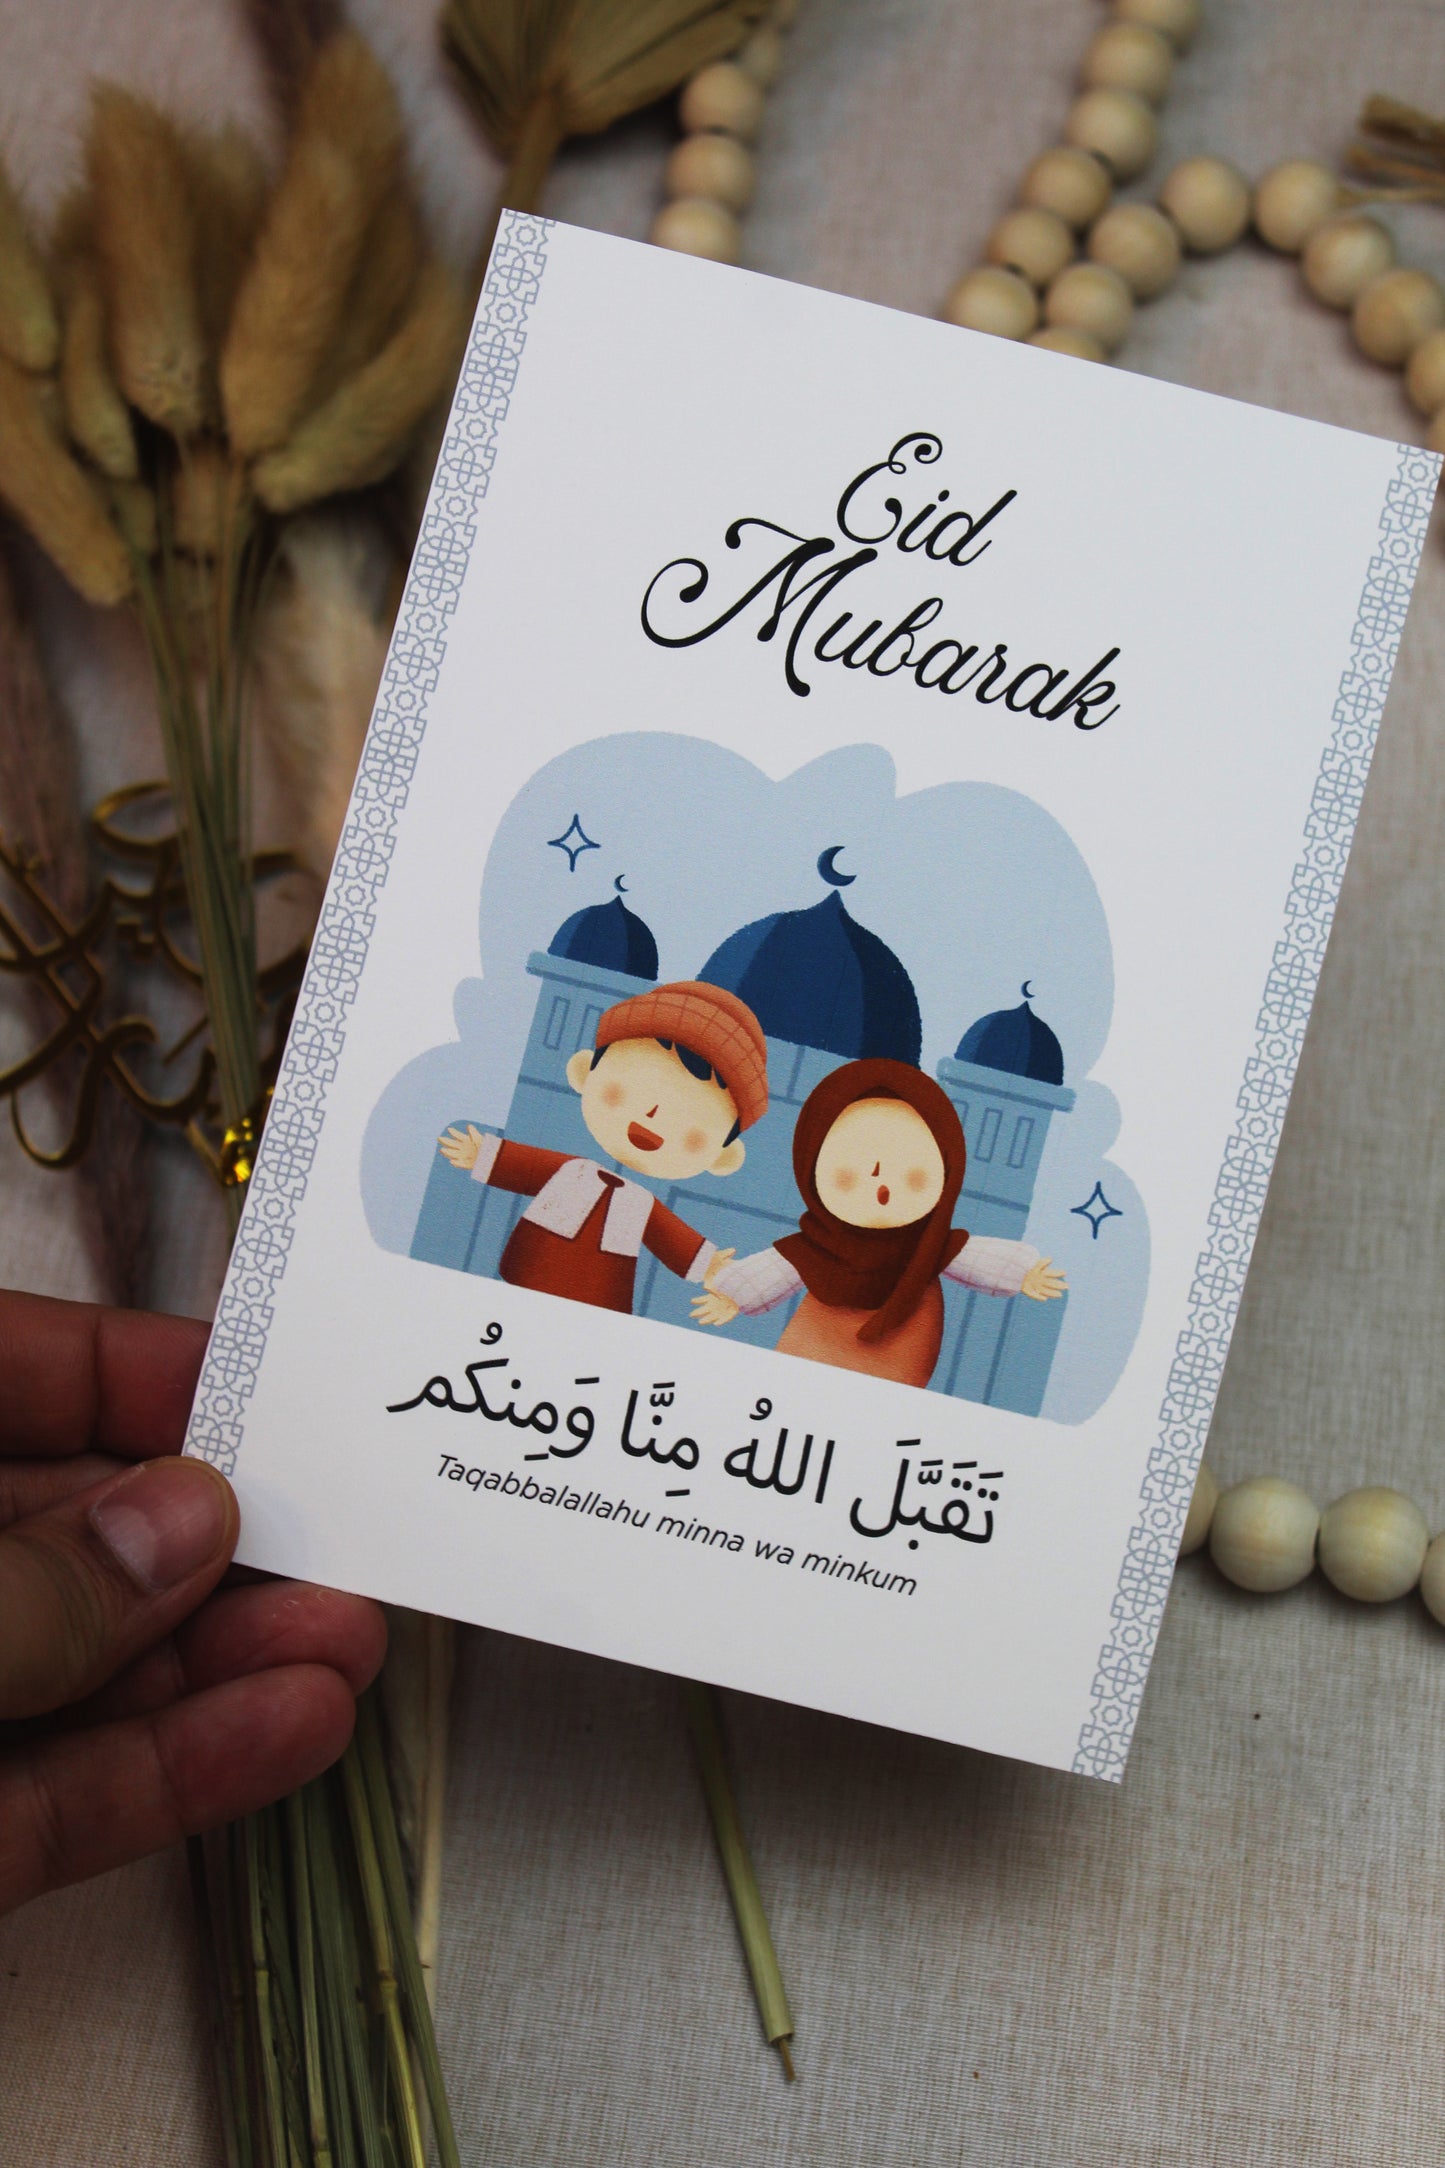 Eid
Mubarak
تَقَبَّلَ اللهُ مِنَّا وَمِنكُم
Taqabbalallahu minna wa minkum